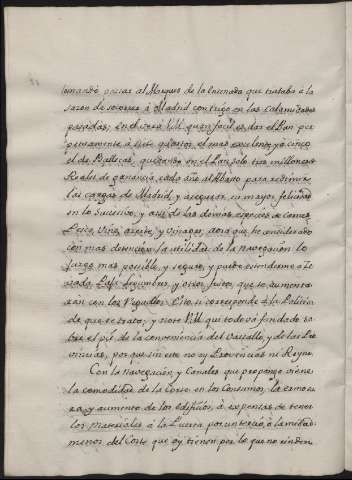 mando pasar al Marques de la Ensenada que trataba a la
sazon de socorrer à Madrid con trigo en las calamidades
pasadas; en el veria V.M. quan facil es dar el Pan per
petuamente à siete quartos, el mas excelente, y a cinco
el de Ballecas, quedando en el Pan, solo tres millones
Reales de ganancia, cada año al Abasto para redimir
las cargas de Madrid, y asegurar su mayor felicidad
en lo Sucesivo, y assi de las demas especies de Carnes
Pesca, Vino, azeite, y Vinagre, aora que he considerado
con mas detencion la utilidad de la navegacion lo
juzgo mas posible, y seguro, y puede extenderse a Ze
vada, Paja, legumbres, y otros frutos, que se aumenta
rán con los Regadios. Esto si corresponde à la Policia
de que se trata; y note V.M. que todo vá fundado so
bre el pie de la conveniencia del Vasallo, y de las Pro
vincias, por que sin esto no ay Provincias ni Reyno.
Con la navegacion, y Canales que propongo viene
la comodidad de la Corte en los Consumos, la hermosu
ra, y aumento de los edificios, à expensas de tener
los materiales à la Puerta por un tercio, ò la mitad
menos del Coste que oy tienen, por lo que no rinden